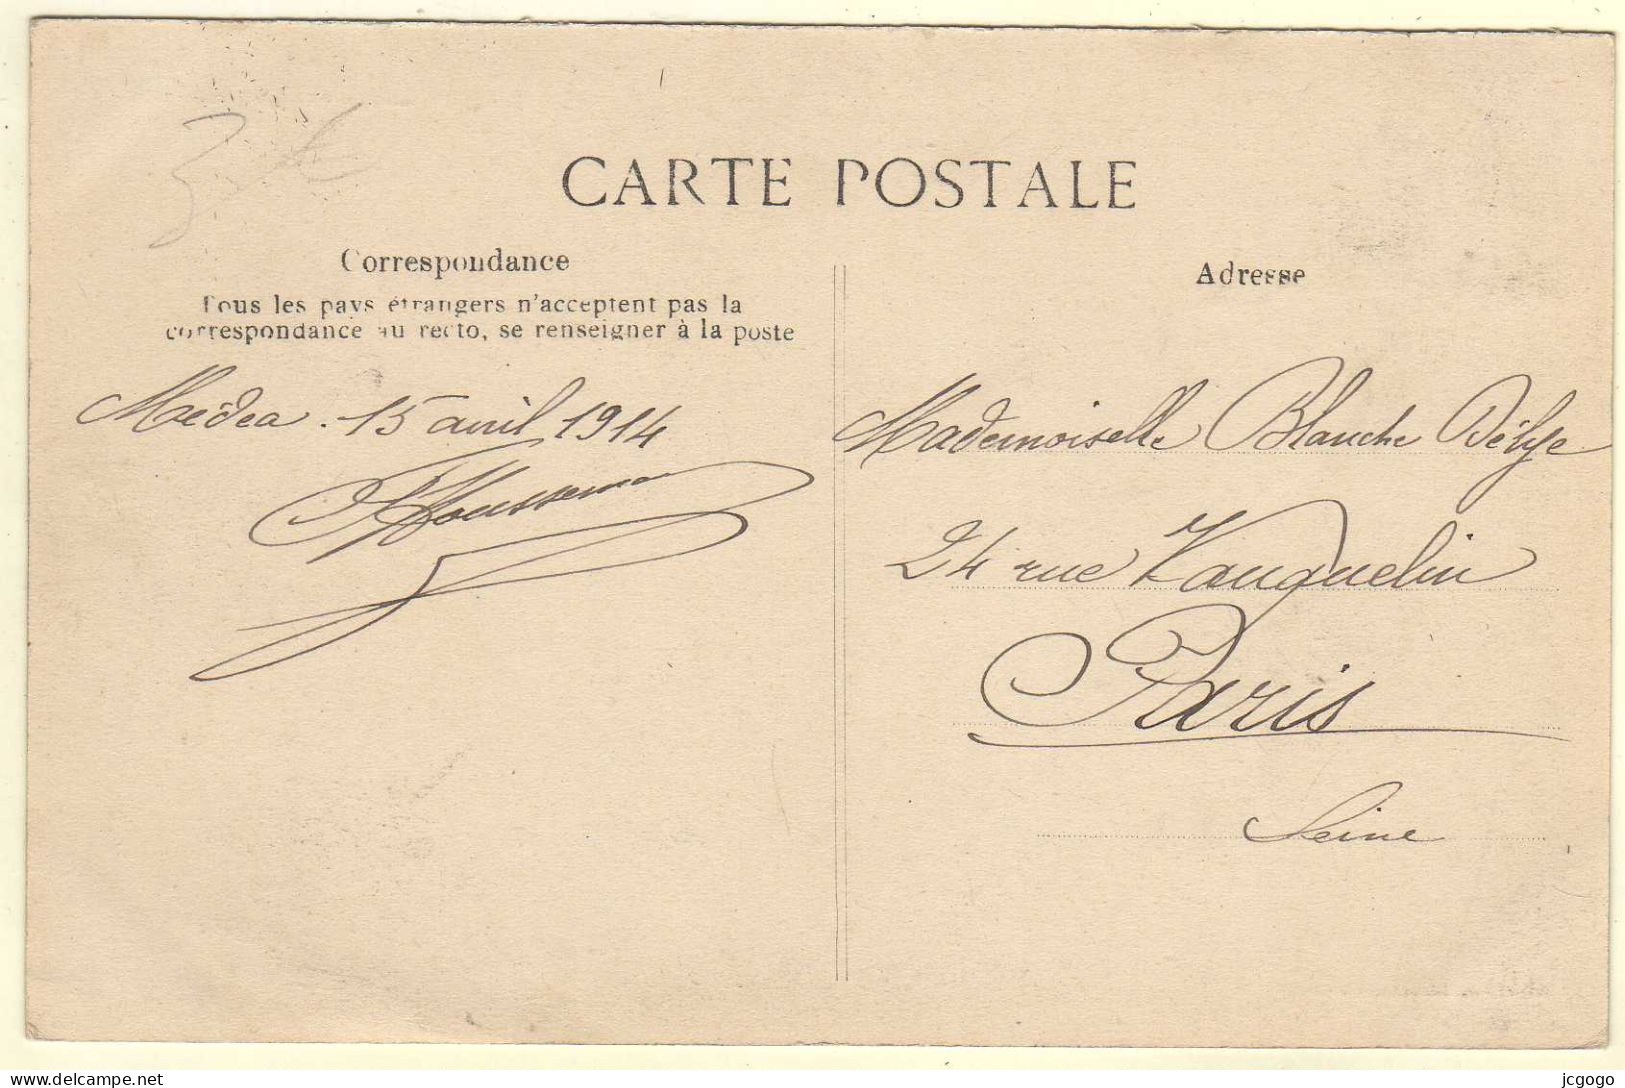 CARTE POSTALE
Correspondance
Tous les pays étrangers n'acceptent pas la
correspondance au recto, se renseigner à la poste
Médéa. 15 avril 1914
Adresse
Mademoiselle Blanche
24 rue Vauquelin
Paris
Seine
delcampe.net
jcgogo